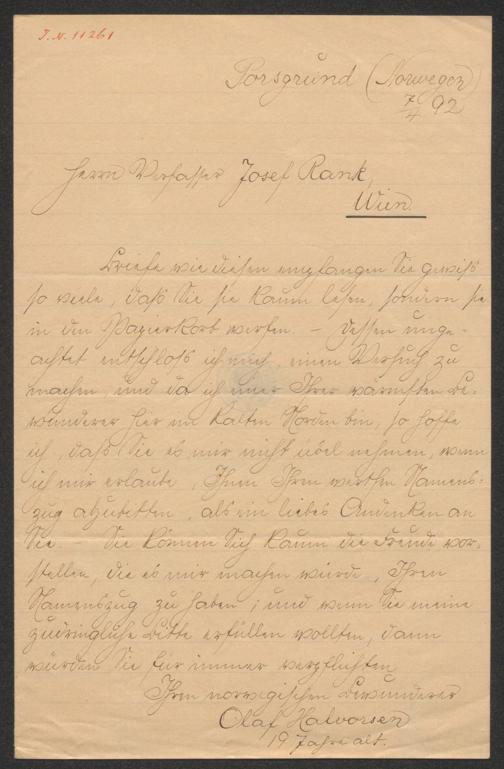 J.N. 11261
Porsgrund (Norwegen)
7/4 92
Herrn Verfasser Josef Rank,
Wien.
Briefe wie diesen empfangen Sie gewiß
so viele, daß Sie sie kaum lesen, sondern sie
in den Papierkorb werfen. – Dessen unge-
achtet entschloss ich mich, einen Versuch zu
machen, und da ich einer Ihrer wärmsten Be-
wunderer hier im kalten Norden bin, so hoffe
ich, daß Sie es mir nicht übel nehmen, wenn
ich mir erlaube, Ihnen Ihren werthen Namens-
zug abzubitten, als ein liebes Andenken an
Sie. – Sie können Sich kaum die Freude vor-
stellen, die es mir machen würde, Ihren
Namenszug zu haben; und wenn Sie meine
zudringliche Bitte erfüllen wollten, dann
würden Sie für immer verpflichten
Ihren norwegischen Bewunderer
Olaf Halvorsen
19 Jahre alt.